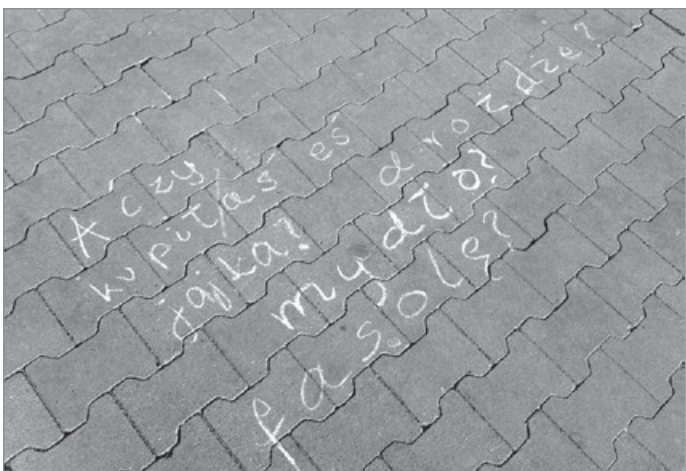 A czy
kupił/aś eś
jajka?
drożdże?
mydło?
fasolę?